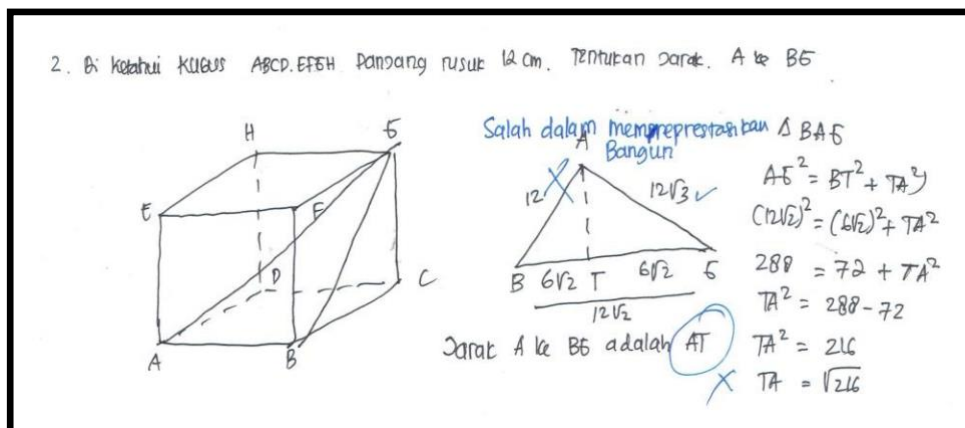 2. Di ketahui KUBUS ABCD.EFGH Panjang rusuk 12 cm. Tentukan Jarak. A ke BG
H
G
E
F
D
C
A
B
Salah dalam mempreprestasikan
Bangun
A
12
12√3
B 6√2 T 6√2 G
12√2
Jarak A ke BG adalah AT
Δ BAG
AG² = BT² + TA²
(12√2)² = (6√2)² + TA²
288 = 72 + TA²
TA² = 288 - 72
TA² = 216
TA = √216